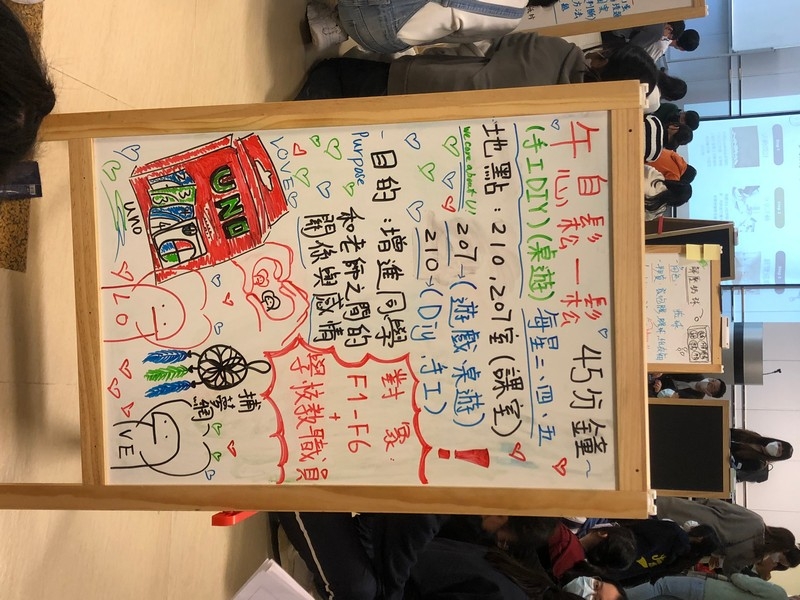 午息鬆一鬆 45分鐘~
(手工DIY)(桌遊) 每星二、四、五
地點：210,207室(課室)
we care about U!
207→(遊戲桌遊)
210→(Diy 手工)
Purpose
目的：增進同學
和老師之間的
關係與感情
對象：
F1-F6
+
學校教職員
LOVE
UNO
UNO
捕夢網
LO
VE